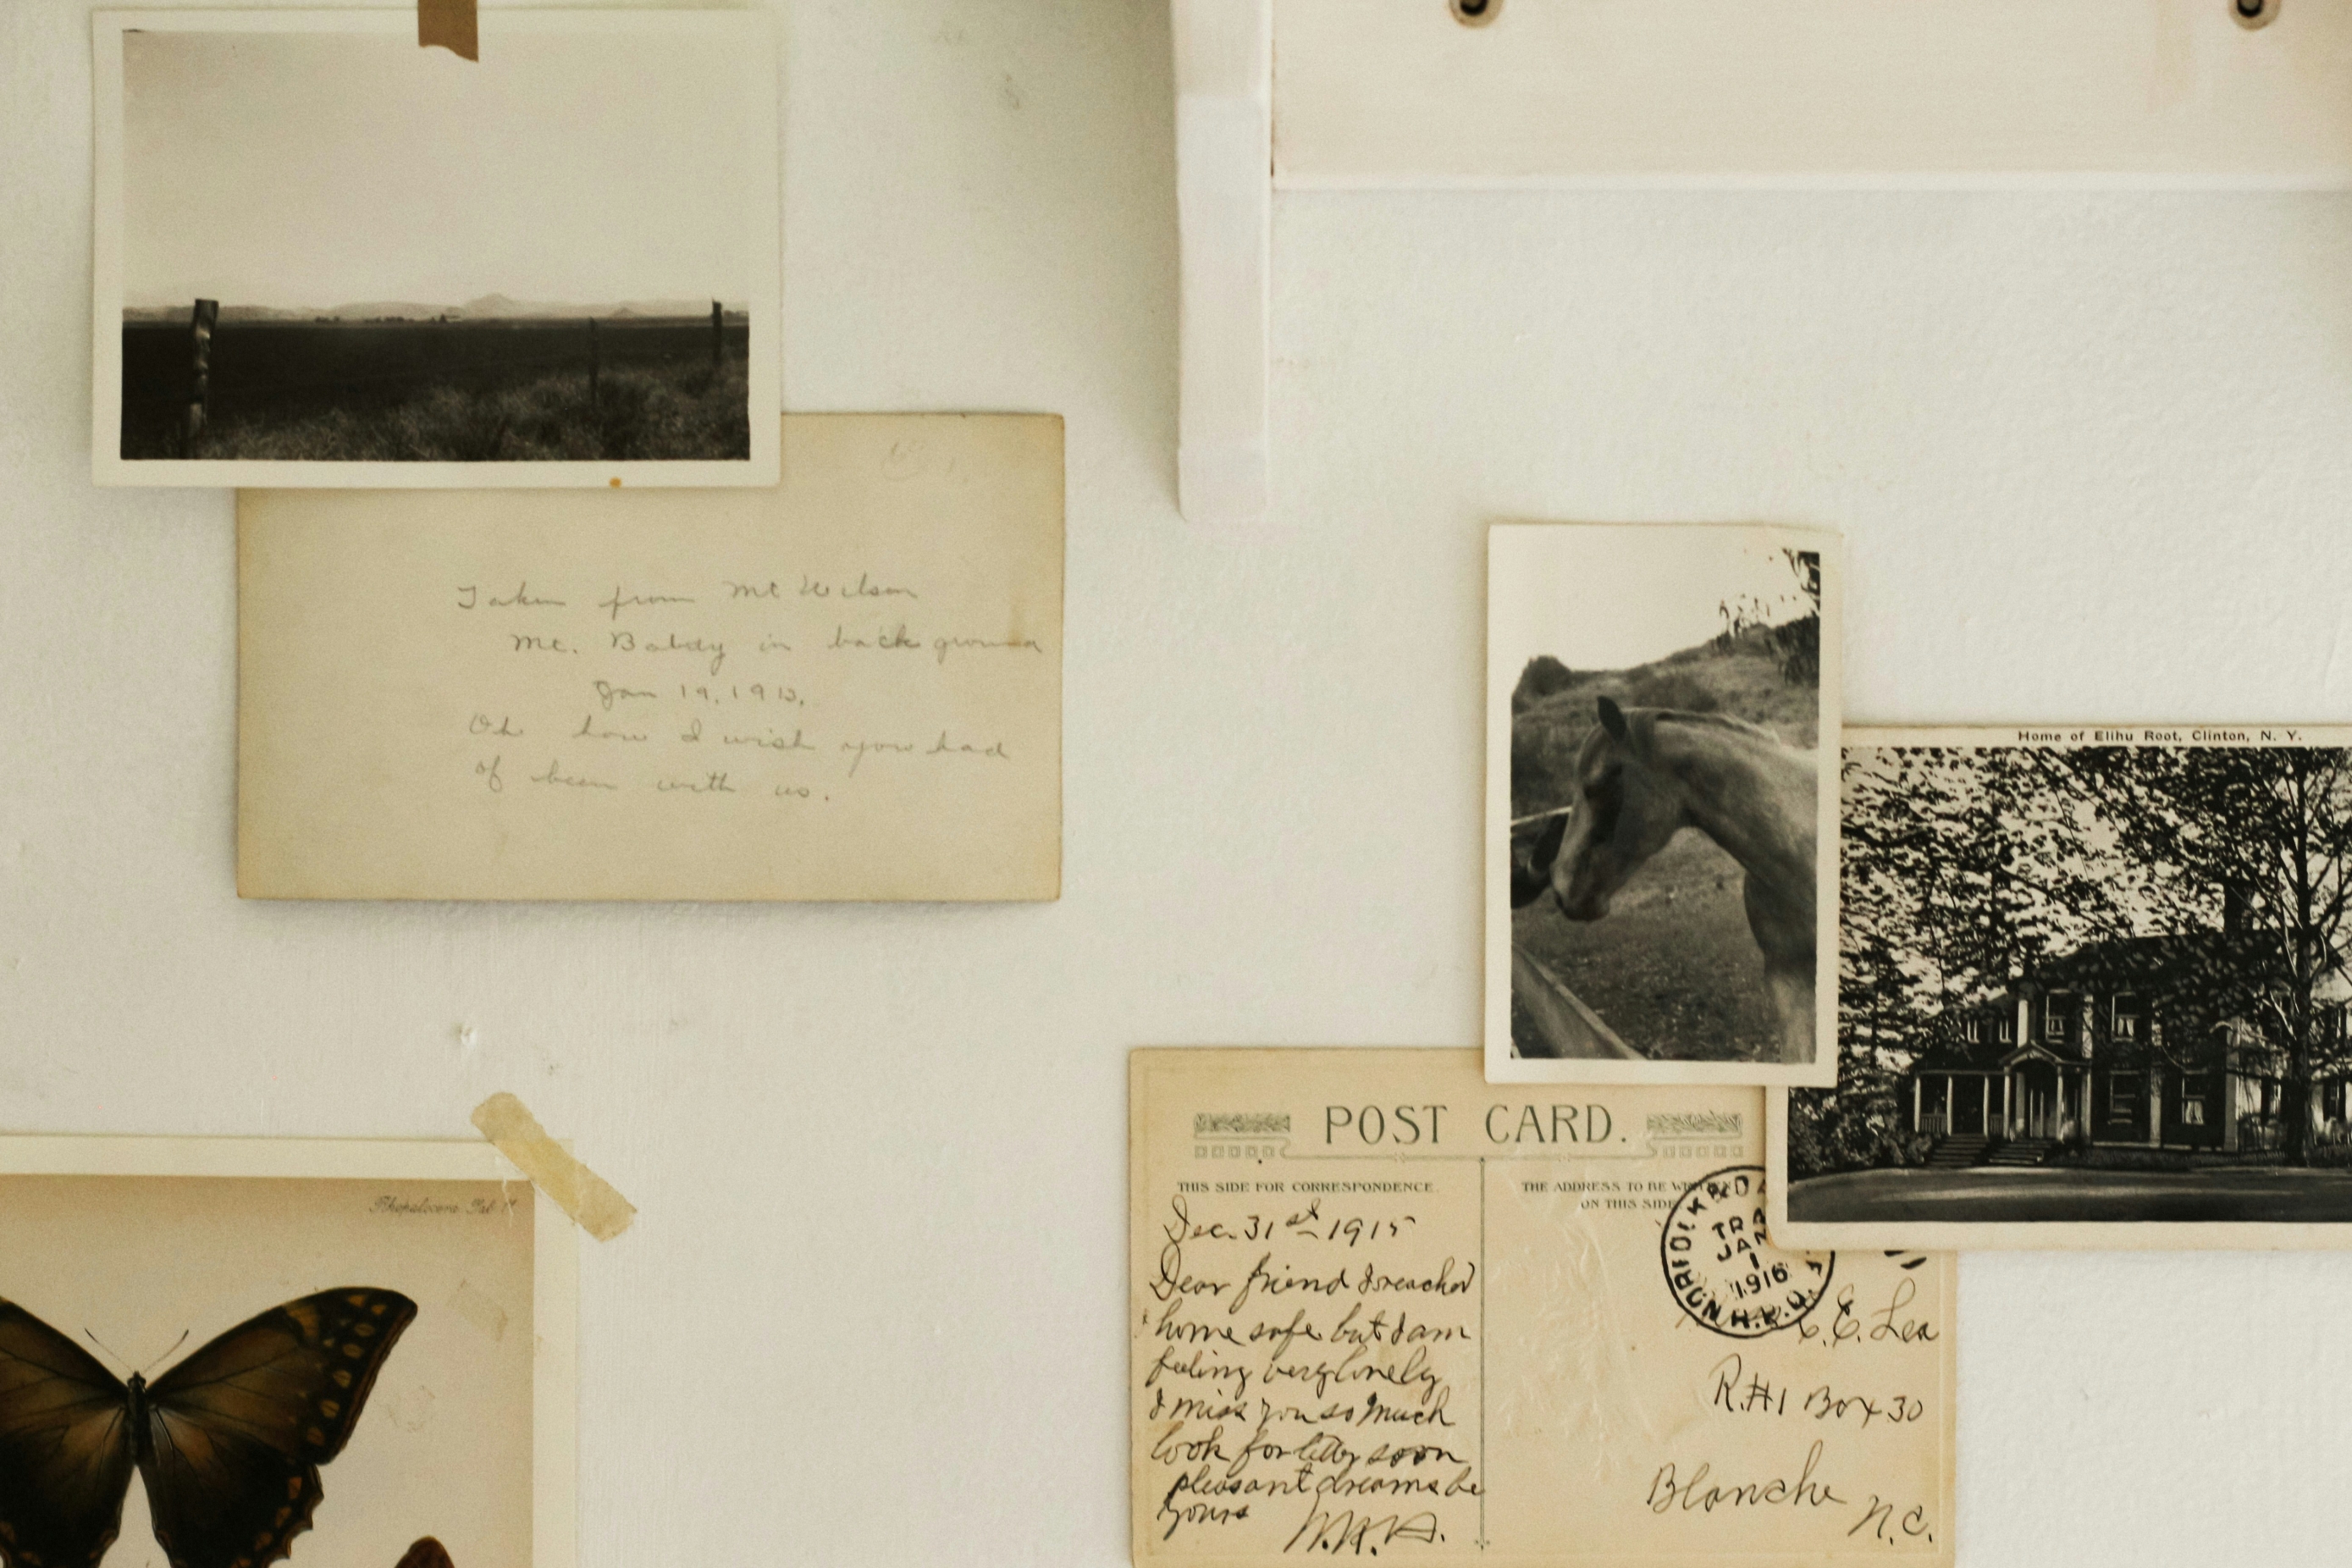 Taken from Mt Wilson
Mt. Baldy in back ground
Jan 19, 1913.
Oh how I wish you had
of been with us.
Home of Elihu Root, Clinton, N. Y.
POST CARD.
THIS SIDE FOR CORRESPONDENCE.
Dec. 31st 1915
Dear friend I reached
home safe but I am
feeling very lonely
I miss you so much
look for letter soon
pleasant dreams be
yours
THE ADDRESS TO BE WRITTEN
ON THIS SIDE
JAN
1
1916
R.P.O.
C.C. Lea
R.#1 Box 30
Blanche
N.C.
Rhopalocera Tab